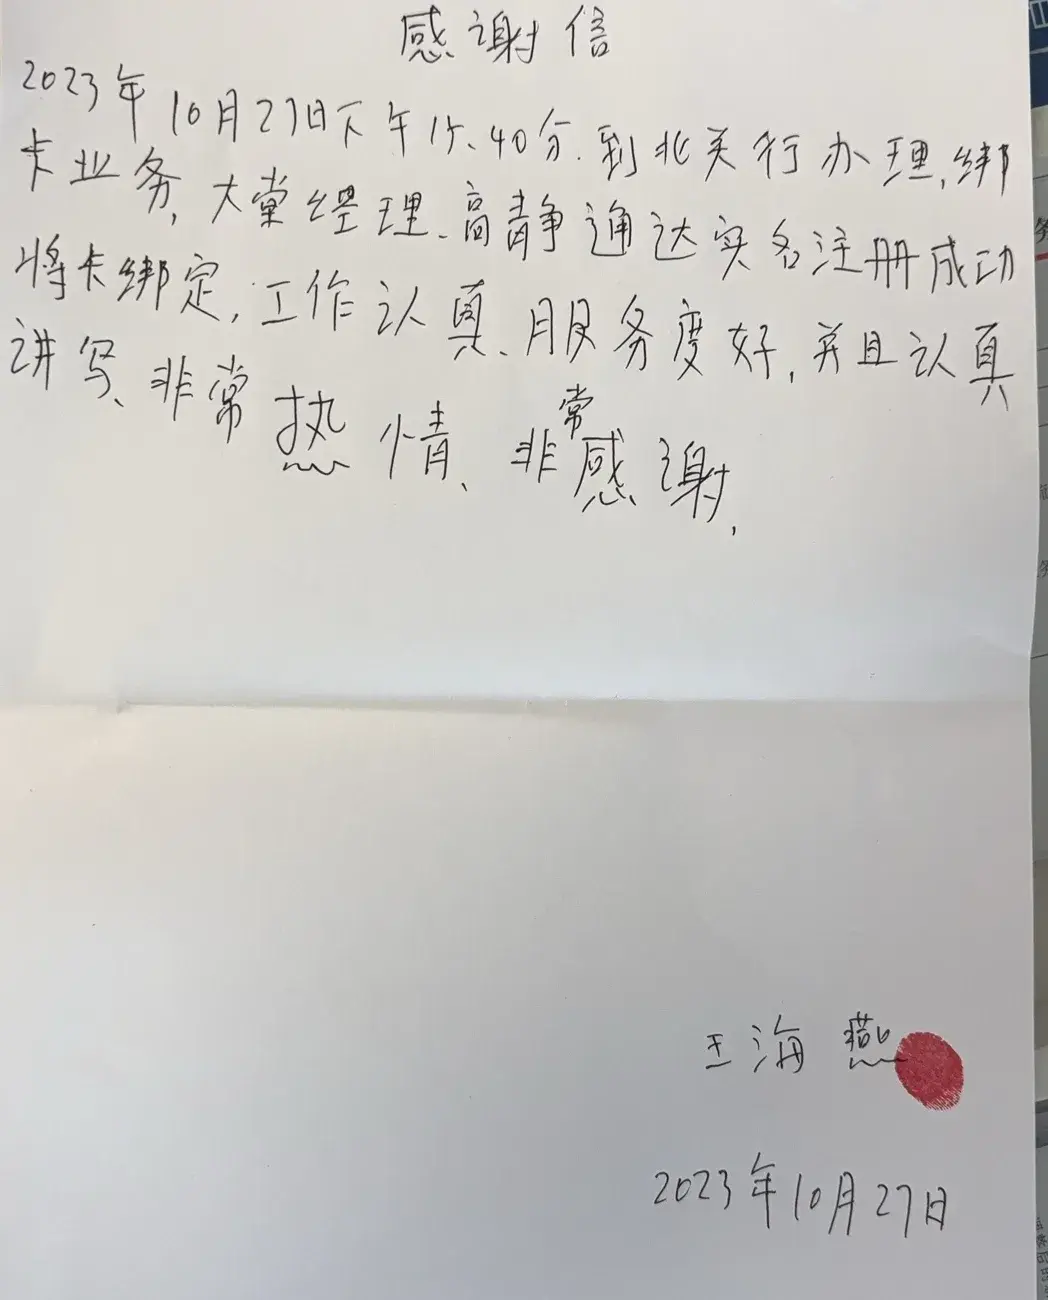 感谢信
2023年10月27日下午1时、40分.到北关行办理,绑
卡业务,大堂经理、高静通达实名注册成功
将卡绑定,工作认真、服务度好,并且认真
讲写、非常热情、非常感谢,
王海燕
2023年10月27日